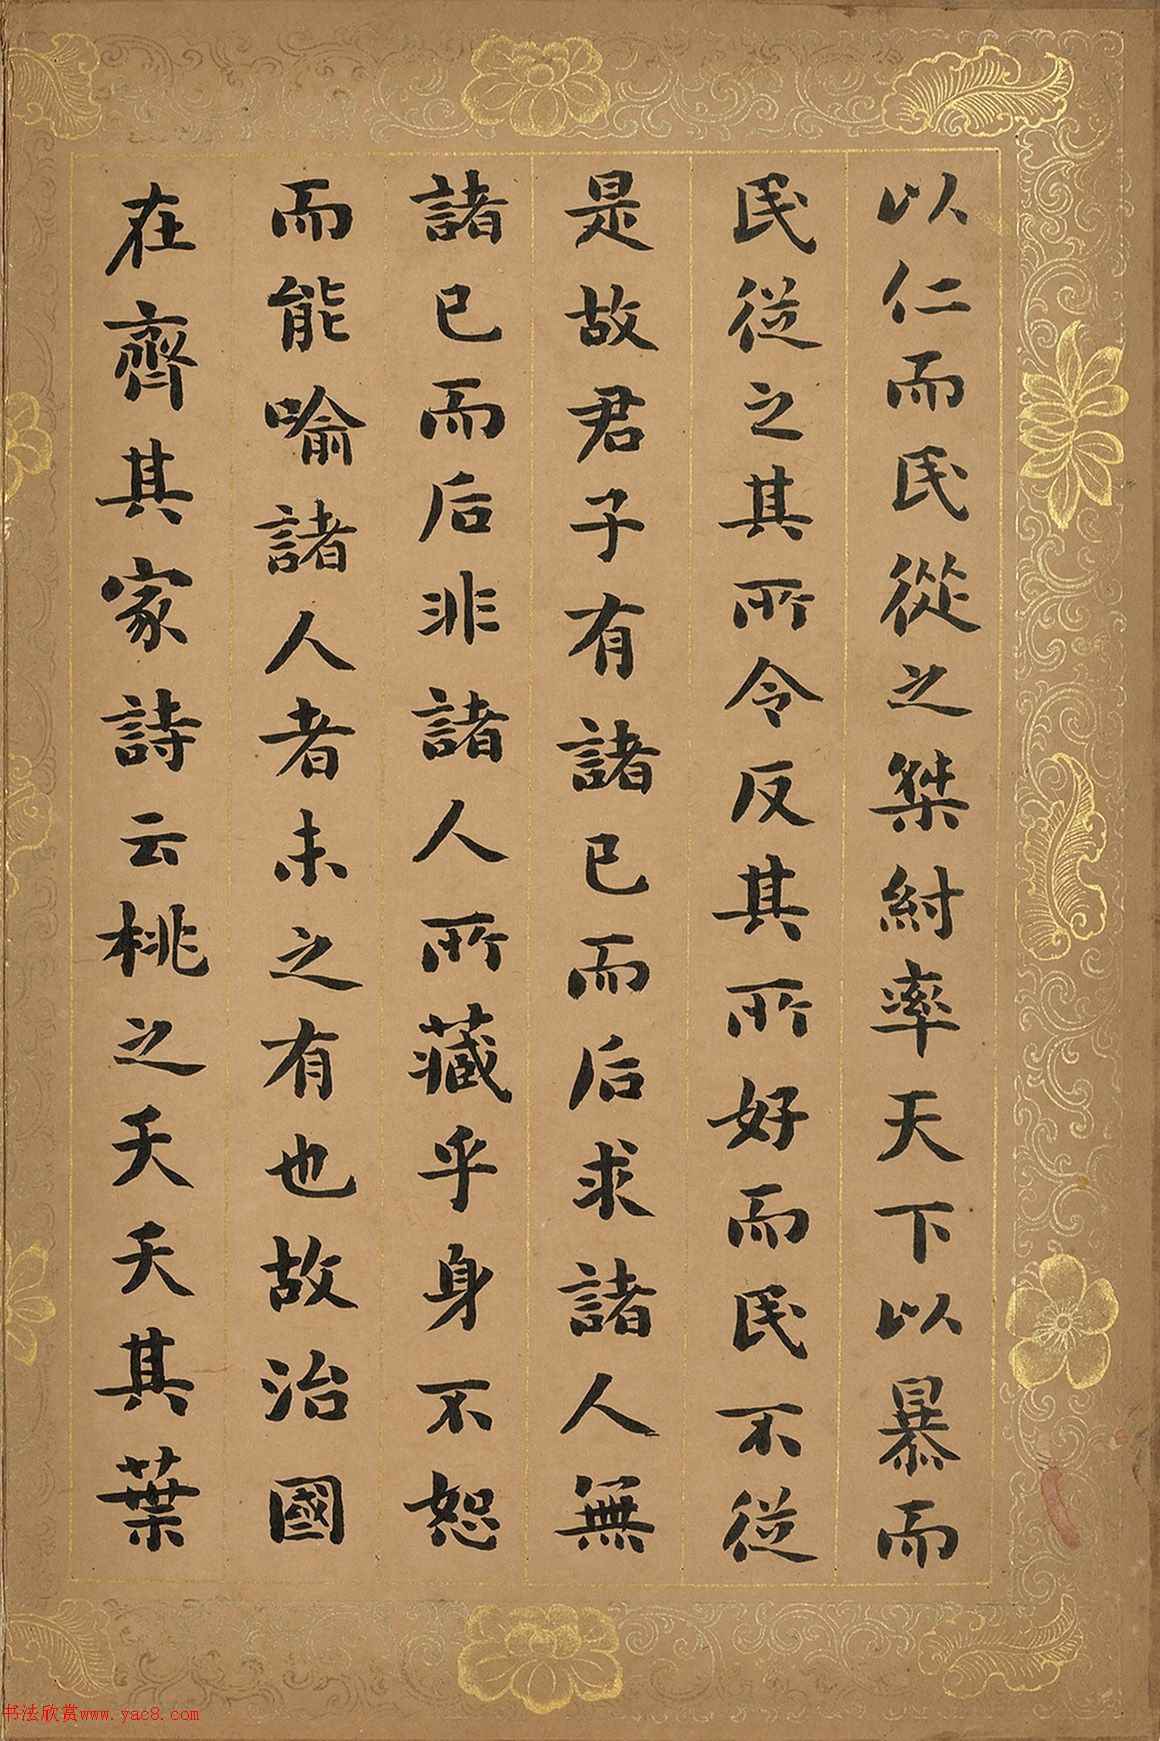 以仁而民從之桀紂率天下以暴而
民從之其所令反其所好而民不從
是故君子有諸己而后求諸人無
諸己而后非諸人所藏乎身不恕
而能喻諸人者未之有也故治國
在齊其家詩云桃之夭夭其葉
书法欣赏www.yac8.com